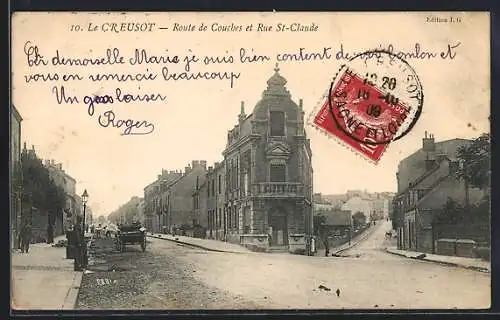 10. Le CREUSOT — Route de Couches et Rue St-Claude
Edition I.G
Chr demoiselle Marie je suis bien content de votre bonbon et
vous en remercie beaucoup
Un gros baiser
Roger
LE CREUSOT
12 20
09
SAONE-ET-LOIRE